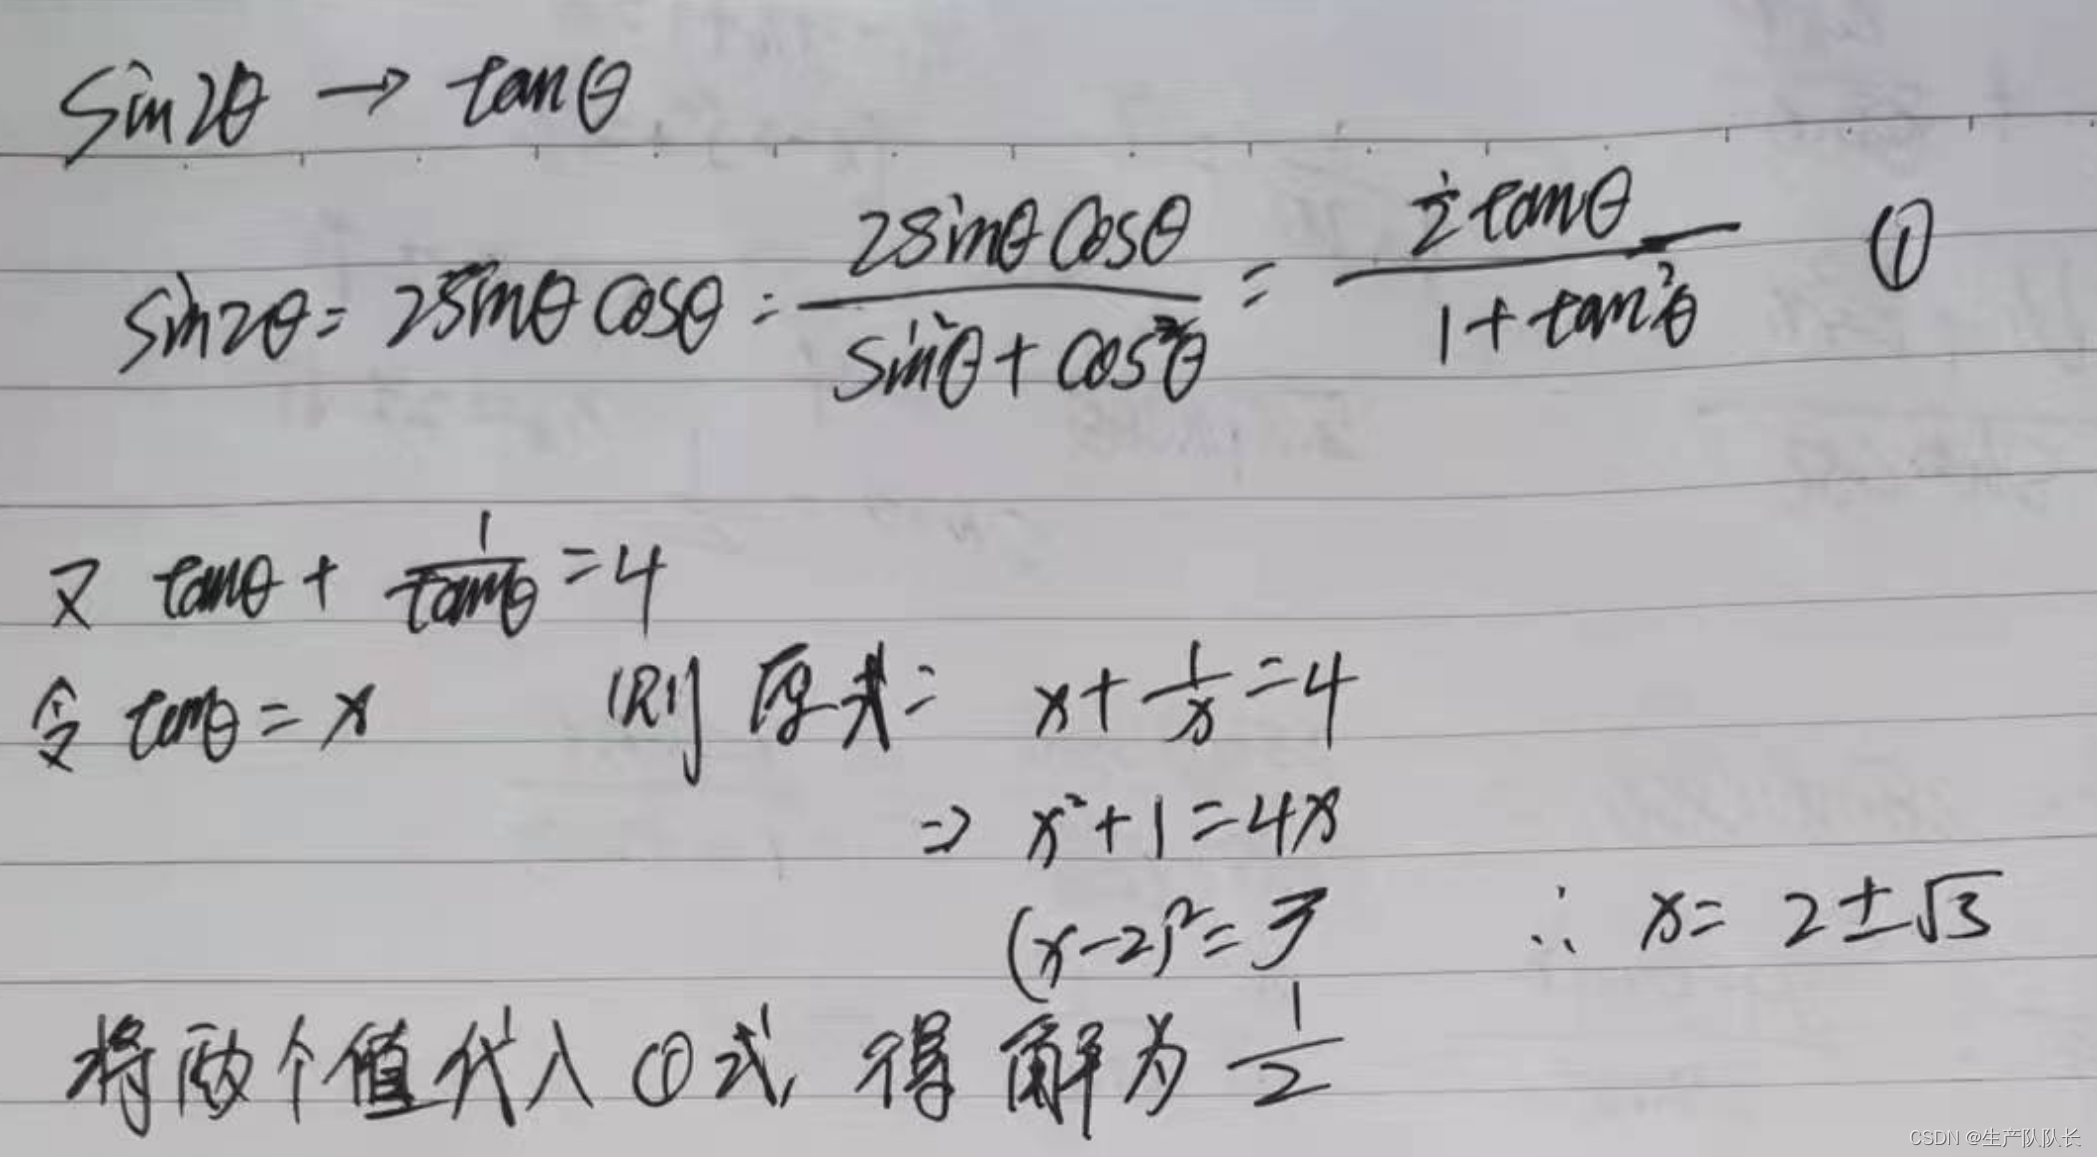 sin2θ → tanθ
sin2θ = 2sinθcosθ = \frac{2sinθcosθ}{sin²θ + cos²θ} = \frac{\frac{1}{2}tanθ}{1 + tan²θ} ①
又 tanθ + \frac{1}{tanθ} = 4
令 tanθ = x 则 原式 = x + \frac{1}{x} = 4
⇒ x² + 1 = 4x
(x-2)² = 3 ∴ x = 2 ± √3
将两个值代入①式, 得解为 \frac{1}{2}
CSDN @生产队队长